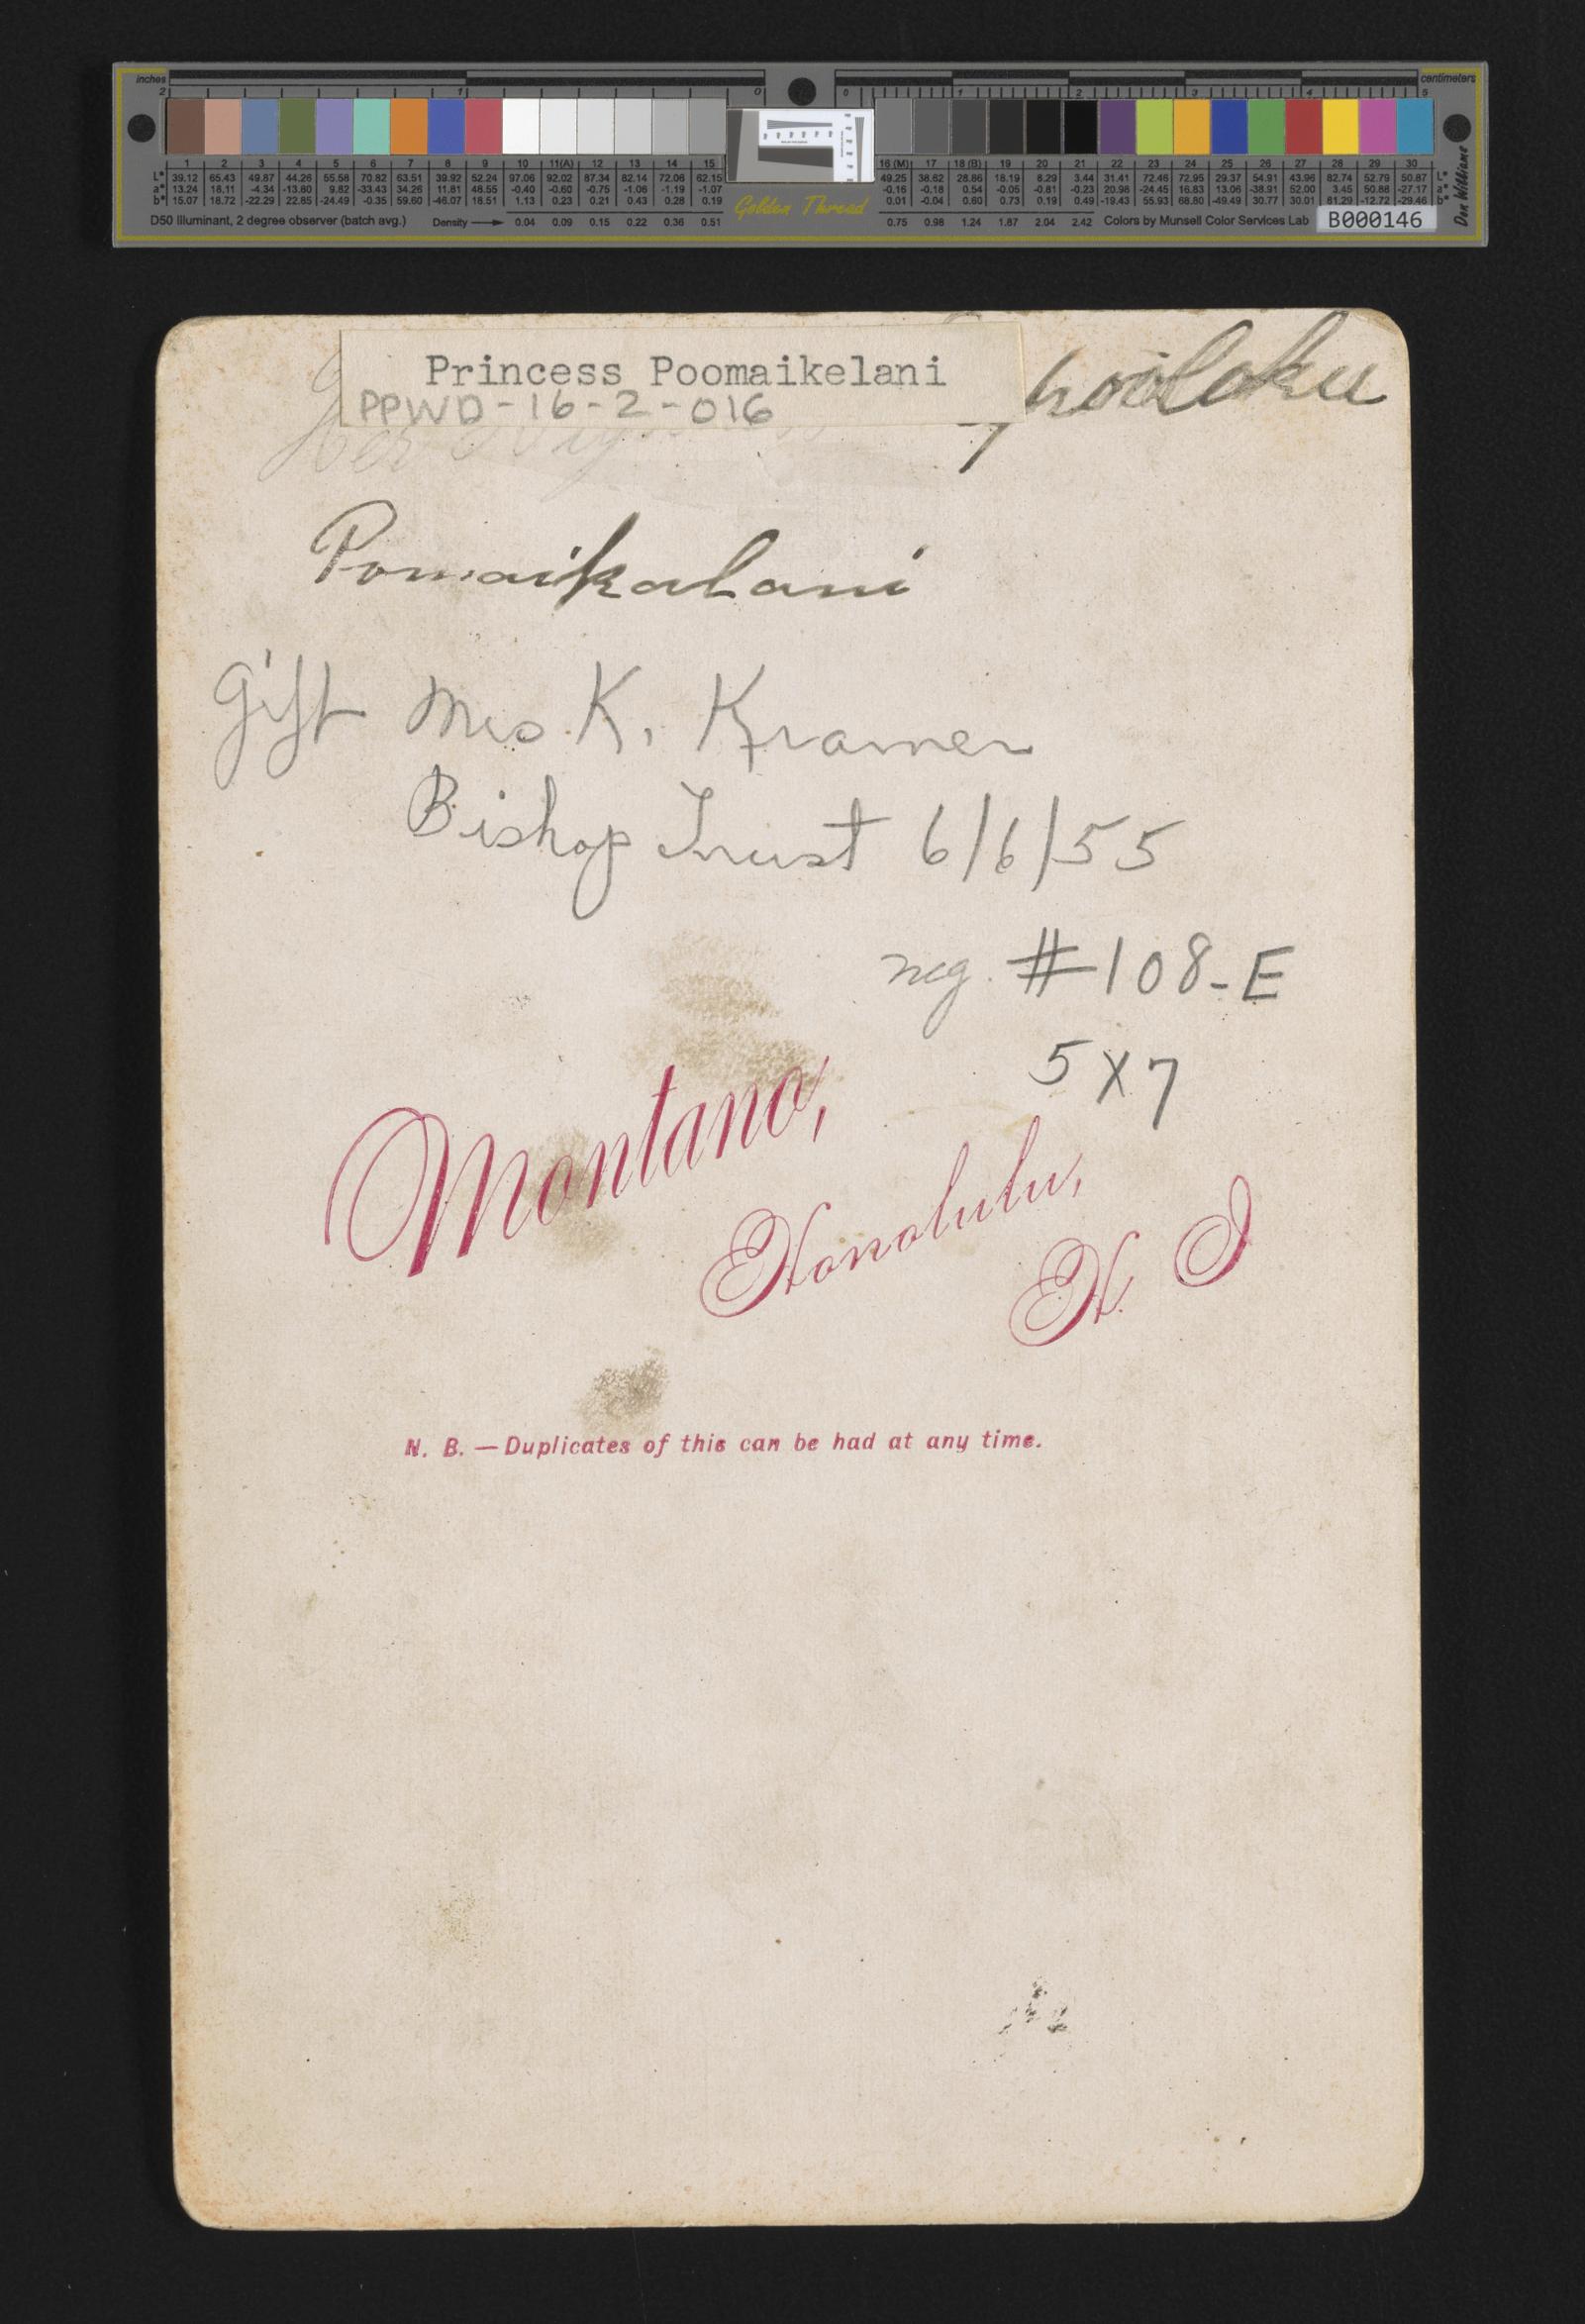 inches
centimeters
2 1 0 0 1 2 3 4 5
1 2 3 4 5 6 7 8 9 10 11(A) 12 13 14 15 16 (M) 17 18 (B) 19 20 21 22 23 24 25 26 27 28 29 30
L* 39.12 65.43 49.87 44.26 55.56 70.82 63.51 39.92 52.24 97.06 92.02 87.34 82.14 72.06 62.15 49.25 38.62 28.86 18.19 8.29 3.44 31.41 72.46 72.95 29.37 54.91 43.96 82.74 52.79 50.87 L*
a* 13.24 18.11 -4.34 -13.80 9.82 -33.43 34.26 11.81 48.55 -0.40 -0.60 -0.75 -1.06 -1.19 -1.07 -0.16 -0.18 0.54 -0.05 -0.81 -0.23 20.98 -24.45 16.83 13.06 -38.91 52.00 3.45 50.88 -27.17 a*
b* 15.07 18.72 -22.29 22.85 -24.49 -0.35 59.60 -46.07 18.51 1.13 0.23 0.21 0.43 0.28 0.19 0.01 -0.04 0.60 0.73 0.19 0.49 -19.43 55.93 68.80 -49.49 30.77 30.01 81.29 -12.72 -29.46 b*
D50 Illuminant, 2 degree observer (batch avg.) Density 0.04 0.09 0.15 0.22 0.36 0.51 Golden Thread 0.75 0.98 1.24 1.67 2.04 2.42 Colors by Munsell Color Services Lab B000146
Don Williams
Princess Poomaikelani
PPWD-16-2-016
Pomaikalani
Gift Mrs K. Kramer
Bishop Trust 6/6/55
neg. #108-E
5X7
Montano,
Honolulu,
H. I
N. B. — Duplicates of this can be had at any time.